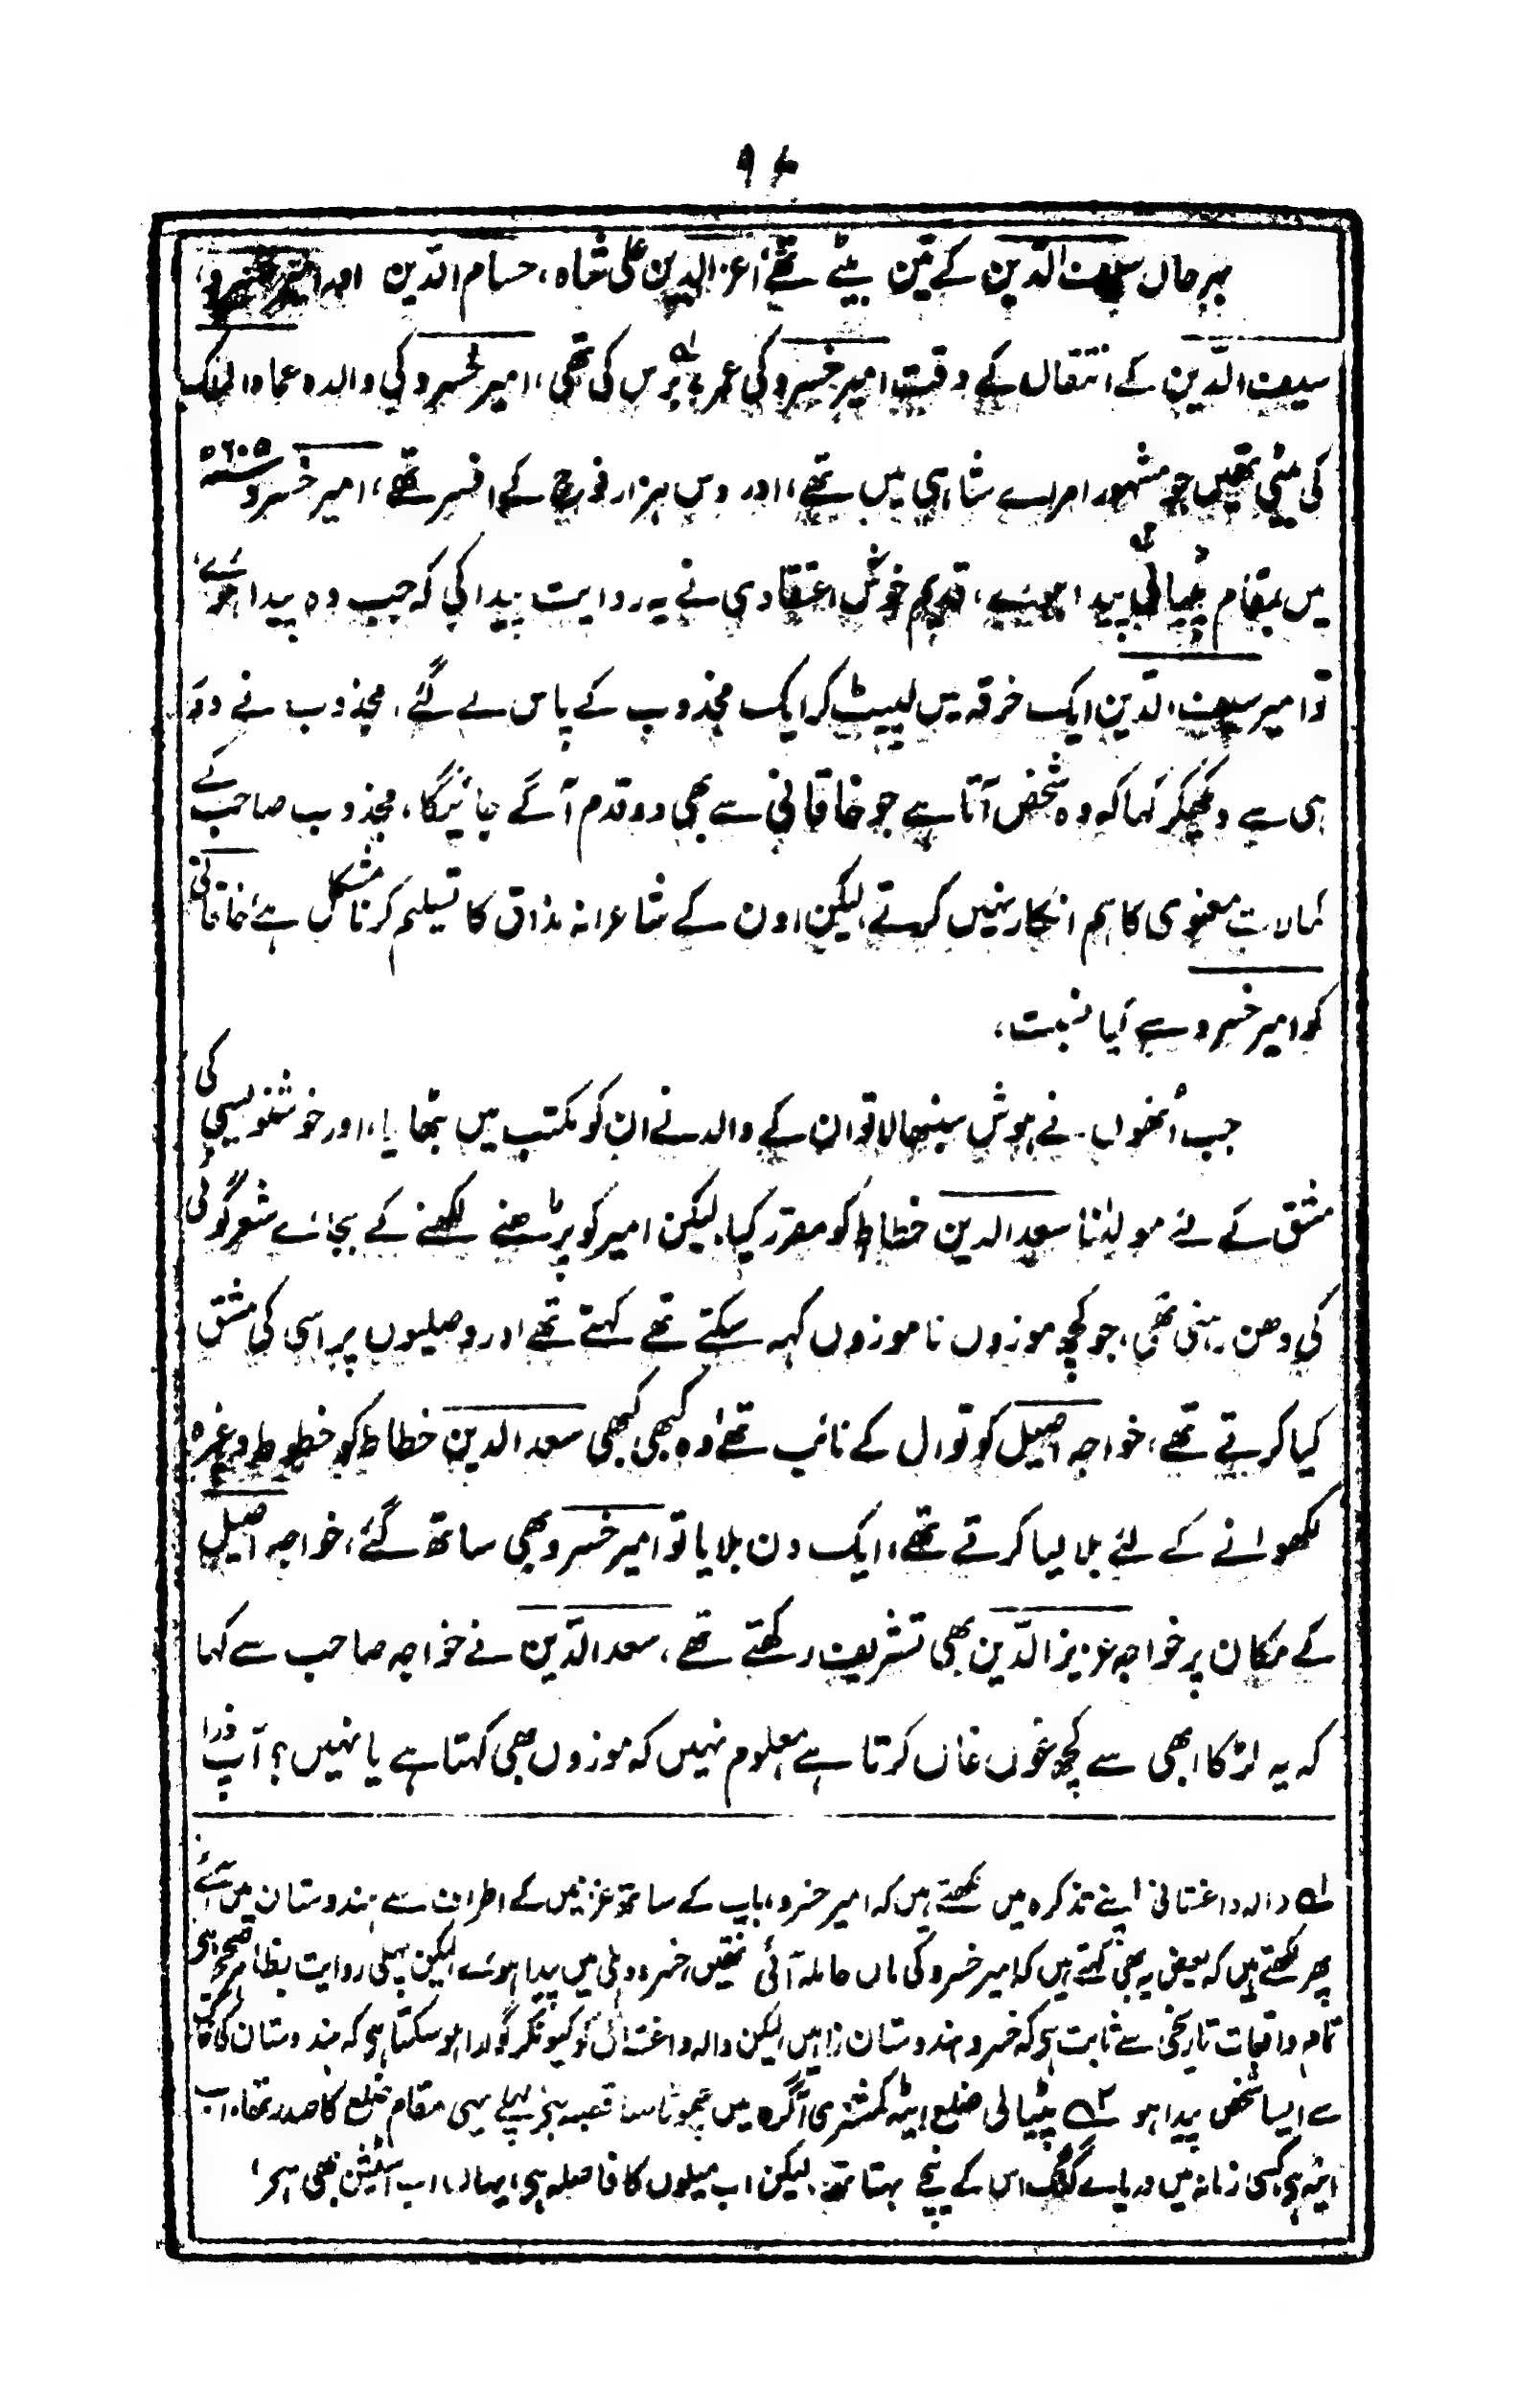 ۹۶
بہرحال سیف الدّین کے تین بیٹے تھے، اعزالدین علی شاہ، حسام الدّین اور امیر خسرو،
سیف الدّین کے انتقال کے وقت امیر خسرو کی عمر برس کی تھی، امیر خسرو کی والدہ عماد الملک
کی بیٹی تھیں جو مشہور امراے شاہی میں تھے، اور دس ہزار فوج کے افسر تھے، امیر خسرو
میں بمقام پٹیالی پیدا ہوے، قدیم خوش اعتقادی نے یہ روایت پیدا کی کہ جب وہ پیدا ہوے،
تو امیر سیف الدّین ایک خرقہ میں لپیٹ کر ایک مجذوب کے پاس لے گئے، مجذوب نے دور
ہی سے دیکھکر کہا کہ وہ شخص آتا ہے جو خاقانی سے بھی دو قدم آگے جائیگا، مجذوب صاحب کے
کمالات معنوی کا ہم انکار نہیں کرتے لیکن اون کے شاعرانہ مذاق کا تسلیم کرنا مشکل ہے، خاقانی
کو امیر خسرو سے کیا نسبت،
جب اُنھوں نے ہوش سنبھالا تو ان کے والد نے ان کو مکتب میں بٹھایا، اور خوشنویسی کی
مشق کے لئے مولٰنا سعد الدین خطاط کو مقرر کیا، لیکن امیر کو پڑھنے لکھنے کے بجاے شعر گوئی
کی دھن رہتی تھی، جو کچھ موزوں ناموزوں کہہ سکتے تھے کہتے تھے اور وصلیوں پر اسی کی مشق
کیا کرتے تھے، خواجہ اصیل کوتوال کے نائب تھے، وہ کبھی کبھی سعد الدین خطاط کو خطوط وغیرہ
لکھوانے کے لئے بلا لیا کرتے تھے، ایک دن بلایا تو امیر خسرو بھی ساتھ گئے، خواجہ اصیل
کے مکان پر خواجہ عزیز الدّین بھی تشریف رکھتے تھے، سعد الدّین نے خواجہ صاحب سے کہا
کہ یہ لڑکا ابھی سے کچھ غوں غاں کرتا ہے، معلوم نہیں کہ موزوں بھی کہتا ہے یا نہیں؟ آپ ذرا
۱؎ والہ داغستانی اپنے تذکرہ میں لکھتے ہیں کہ امیر خسرو، باپ کے ساتھ غزنیں کے اطراف سے ہندوستان میں آئے
پھر لکھتے ہیں کہ بعض یہ بھی کہتے ہیں کہ امیر خسرو کی ماں حاملہ آئی تھیں، خسرو دہلی میں پیدا ہوے، لیکن پہلی روایت بظاہر صحیح ہی
تمام واقعات تاریخی سے ثابت ہی کہ خسرو ہندوستان زا ہیں، لیکن والہ داغستانی کو کیونکر گوارا ہو سکتا ہی کہ ہندوستان کی خاک
سے ایسا شخص پیدا ہو ۲؎ پٹیالی ضلع ایٹہ کمشنری آگرہ میں چھوٹا سا قصبہ ہے، پہلے یہی مقام ضلع کا صدر تھا، اب
ایٹہ ہی، کسی زمانہ میں دریاے گنگ اس کے نیچے بہتا تھا، لیکن اب میلوں کا فاصلہ ہی، یہاں اب اسٹیشن بھی ہے،